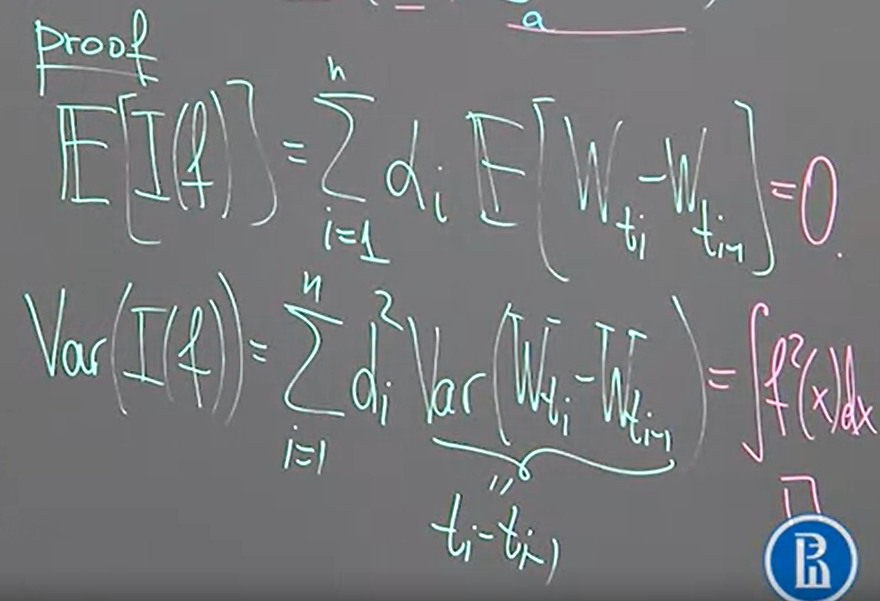 a
proof
E[I(f)] = ∑_{i=1}^{n} α_i E[W_{t_i} - W_{t_{i-1}}] = 0.
Var(I(f)) = ∑_{i=1}^{n} α_i^2 Var(W_{t_i} - W_{t_{i-1}}) = ∫f^2(x)dx
"
t_i - t_{i-1}